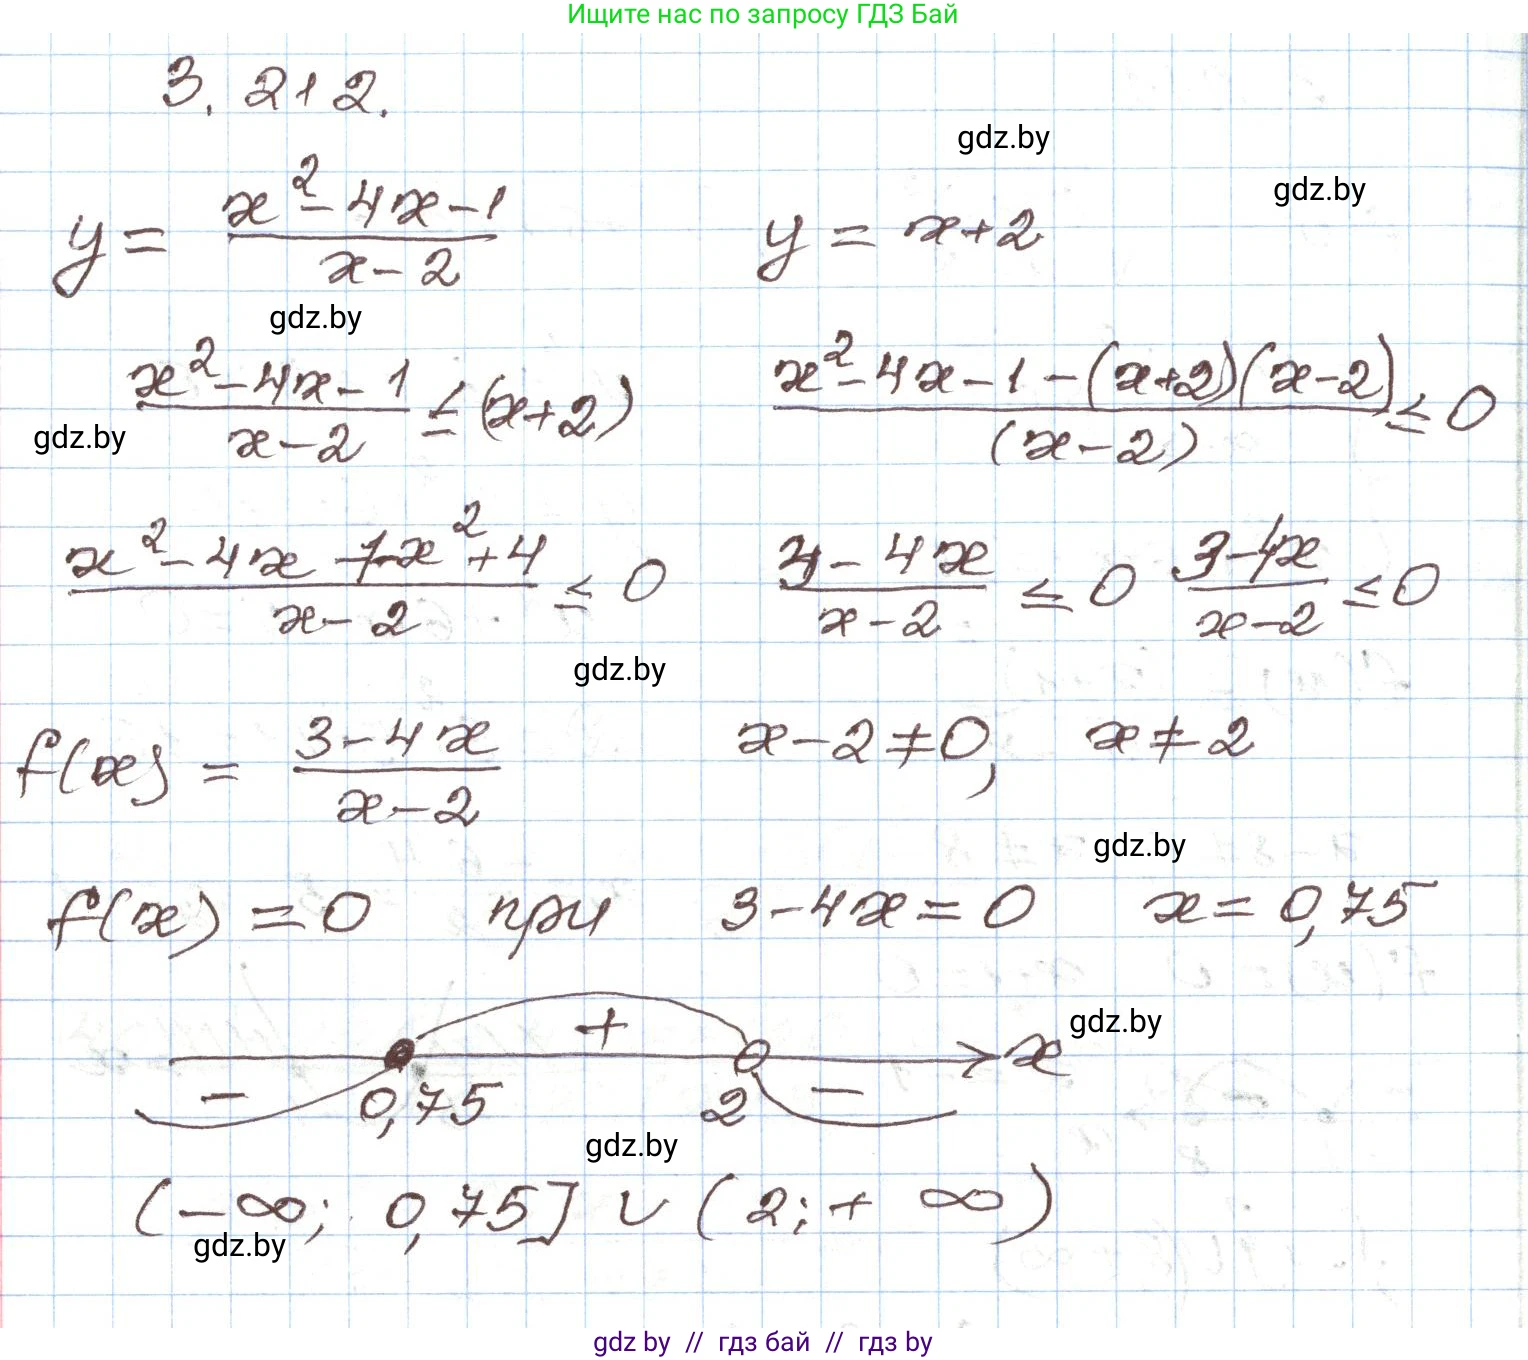 Ищите нас по запросу ГДЗ Бай
3.212.
gdz.by
gdz.by
y = (x² - 4x - 1)/(x - 2)   y = x+2
gdz.by
(x² - 4x - 1)/(x - 2) ≤ (x+2)   (x² - 4x - 1 - (x+2)(x-2))/((x-2)) ≤ 0
gdz.by
(x² - 4x - 1 - x² + 4)/(x - 2) ≤ 0   (3 - 4x)/(x - 2) ≤ 0   (3 - 4x)/(x - 2) ≤ 0
gdz.by
f(x) = (3 - 4x)/(x - 2)   x - 2 ≠ 0,   x ≠ 2
gdz.by
f(x) = 0   при   3 - 4x = 0   x = 0,75
+   x   gdz.by
-   0,75   2   -
gdz.by
(-∞; 0,75] ∪ (2; + ∞)
gdz.by
gdz by // гдз бай // гдз by